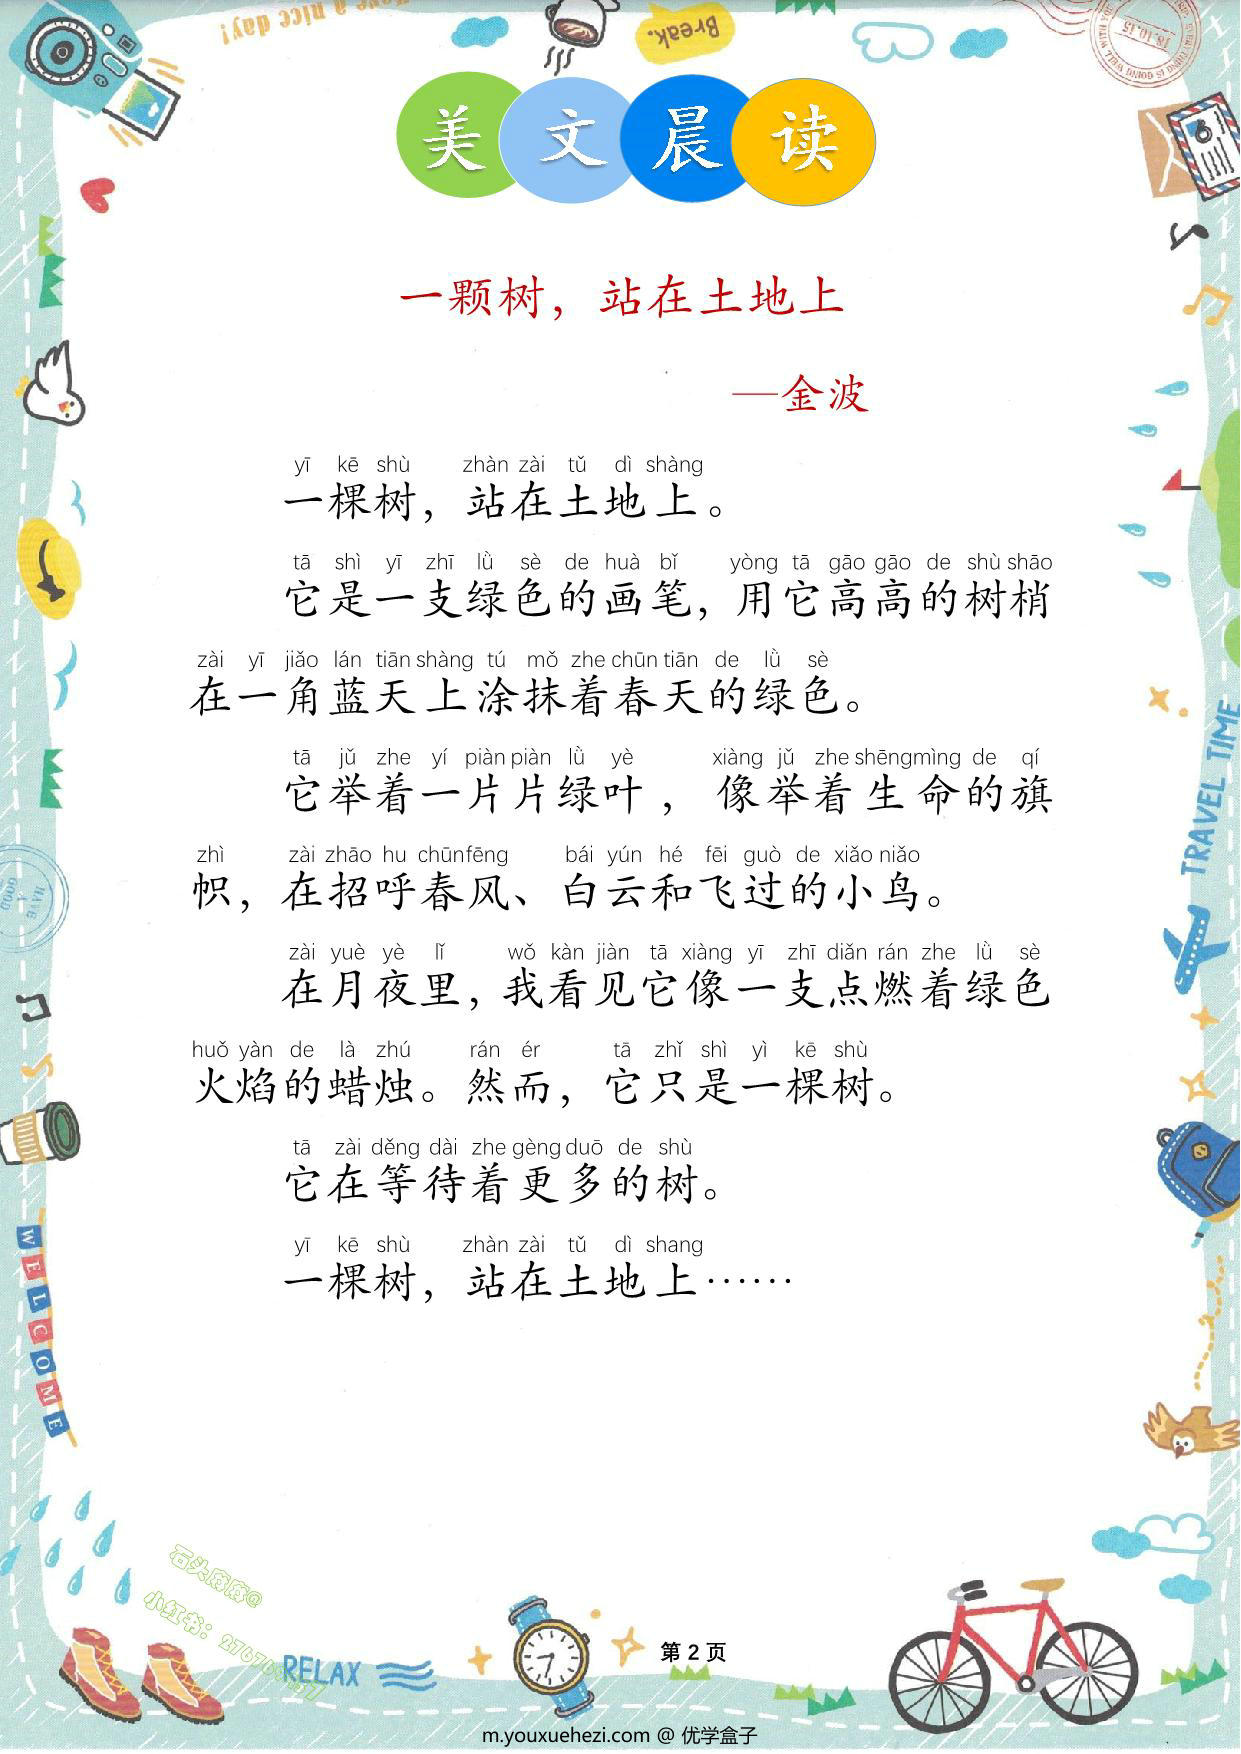 Have a nice day!
Break.
18.10.15
美文晨读
一颗树，站在土地上
—金波
yī kē shù zhàn zài tǔ dì shàng
一棵树，站在土地上。
tā shì yī zhī lǜ sè de huà bǐ yòng tā gāo gāo de shù shāo
它是一支绿色的画笔，用它高高的树梢
zài yī jiǎo lán tiān shàng tú mǒ zhe chūn tiān de lǜ sè
在一角蓝天上涂抹着春天的绿色。
tā jǔ zhe yí piàn piàn lǜ yè xiàng jǔ zhe shēng mìng de qí
它举着一片片绿叶，像举着生命的旗
zhì zài zhāo hu chūn fēng bái yún hé fēi guò de xiǎo niǎo
帜，在招呼春风、白云和飞过的小鸟。
zài yuè yè lǐ wǒ kàn jiàn tā xiàng yī zhī diǎn rán zhe lǜ sè
在月夜里，我看见它像一支点燃着绿色
huǒ yàn de là zhú rán ér tā zhǐ shì yì kē shù
火焰的蜡烛。然而，它只是一棵树。
tā zài děng dài zhe gèng duō de shù
它在等待着更多的树。
yī kē shù zhàn zài tǔ dì shang
一棵树，站在土地上……
TRAVEL TIME
WELCOME
RELAX
第 2 页
m.youxuehezi.com @ 优学盒子